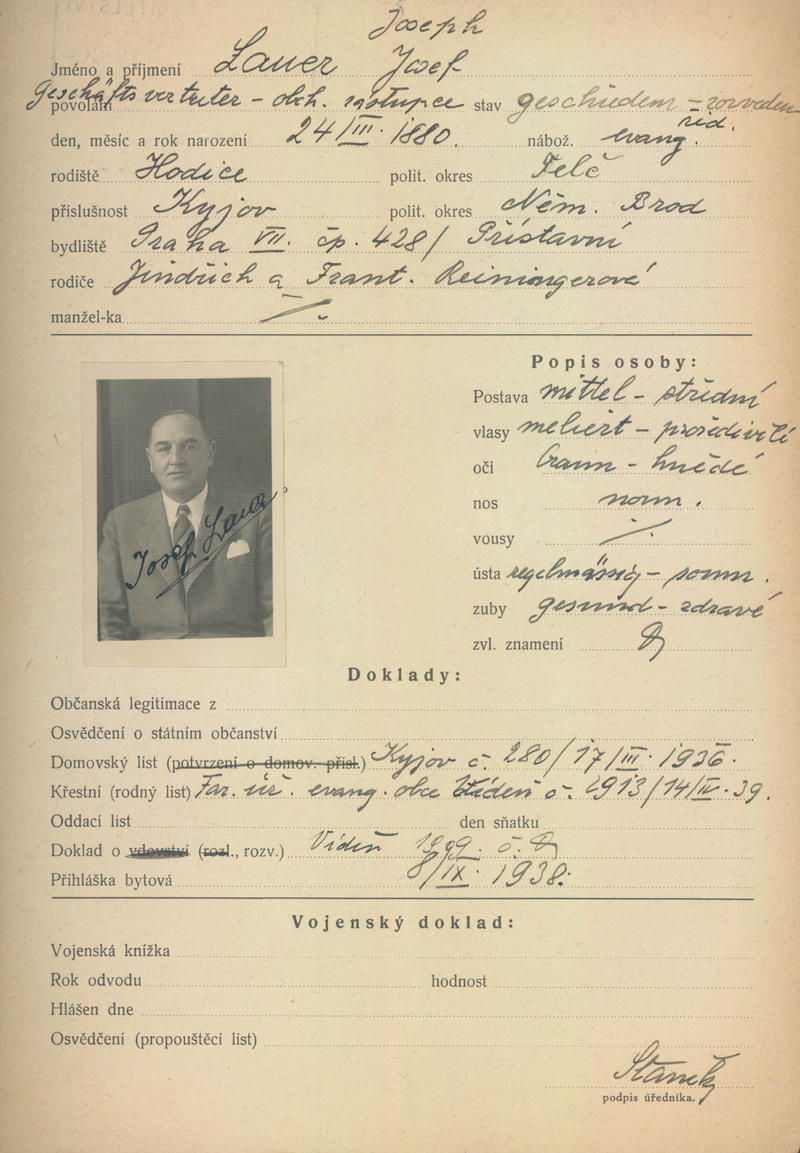 Joseph
Jméno a příjmení Lauer Josef
povolání Geschäftsvertreter – obch. zástupce stav geschieden – rozveden
den, měsíc a rok narození 24/III. 1880. nábož. evang. žid.
rodiště Hodice polit. okres Telč
příslušnost Kyjov polit. okres Něm. Brod
bydliště Praha VII. čp. 428/ Přístavní
rodiče Jindřich a Frant. Reiningerová
manžel-ka
Popis osoby:
Postava mittel – střední
vlasy meliert – prošedivělé
oči braun – hnědé
nos norm.
vousy
ústa regelmässig – norm.
zuby gesund – zdravé
zvl. znamení
Josef Lauer
Doklady:
Občanská legitimace z
Osvědčení o státním občanství
Domovský list (potvrzení o domov. přísl.) Kyjov č. 280/17/III. 1936.
Křestní (rodný list) Far. úř. evang. obce Vídeň č. 1913/14/IV. 39.
Oddací list den sňatku
Doklad o vdovství (rozl., rozv.) Vídeň 1909. č.
Přihláška bytová 8/IX. 1938.
Vojenský doklad:
Vojenská knížka
Rok odvodu hodnost
Hlášen dne
Osvědčení (propouštěcí list)
Staněk
podpis úředníka.